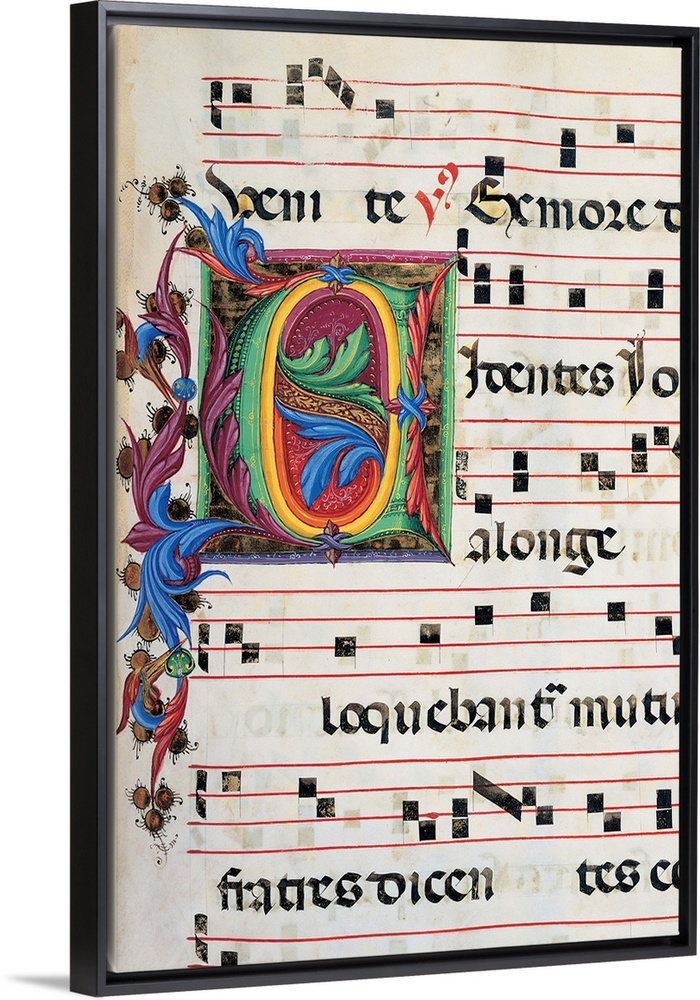 veni te ℣ Exmore d
Videntes Io
alonge
loquebant᷑ mutu
fratres dicen tes ec